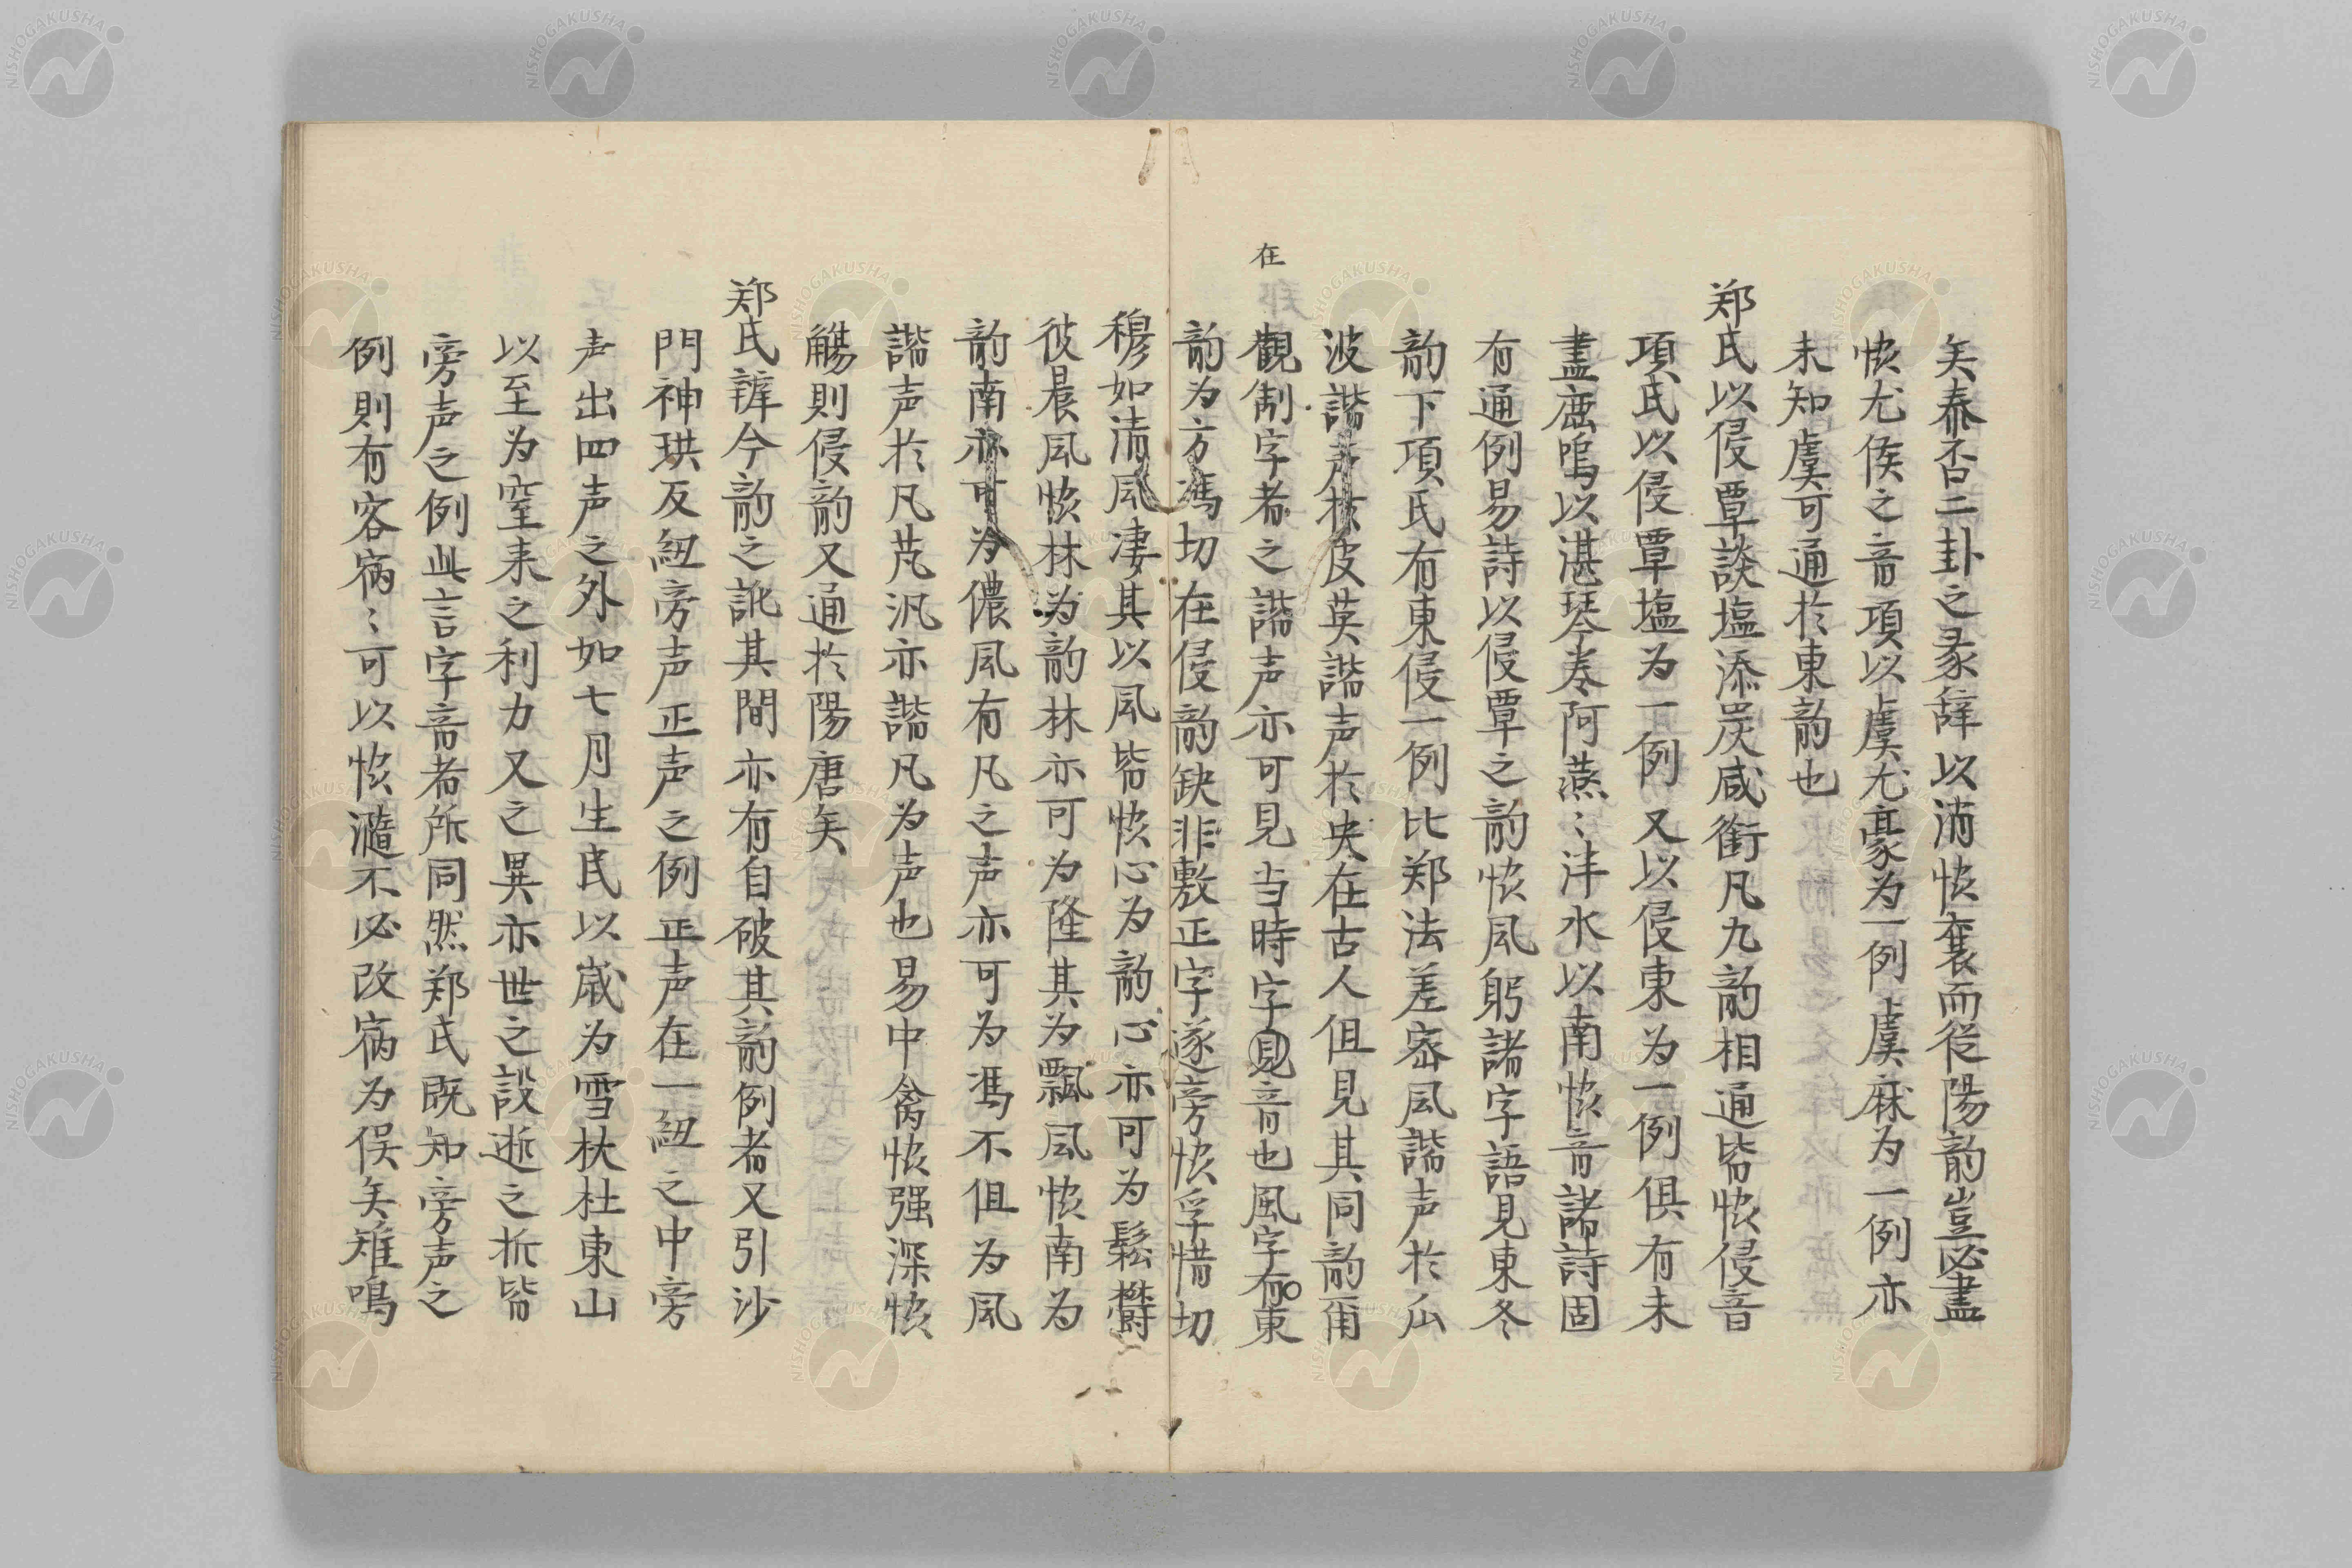 矣泰否二卦之彖辞以消恊衰而從陽韵豈必盡
恊尤侯之音項以虞尤豪为一例虞麻为一例亦
未知虞可通於東韵也
郑氏以侵覃談塩添炎咸銜凡九韵相通皆恊侵音
項氏以侵覃塩为一例又以侵東为一例俱有未
盡鹿鳴以湛琴卷阿燕〻泮水以南恊音諸詩固
有通例易詩以侵覃之韵恊风躬諸字語見東冬
韵下項氏有東侵一例比郑法差密风諧声於
波諧声於皮英諧声於央在古人但見其同韵甫
在
觀制字者之諧声亦可見当時字見音也風字有東
韵为方馮切在侵韵缺非敷正字遂旁恊孚惜切
穆如清风凄其以风皆恊心为韵心亦可为鬆欝
彼晨风恊林为韵林亦可为隆其为飄风恊南为
韵南亦可为儂风有凡之声亦可为馮不但为风
諧声於凡芃汎亦諧凡为声也易中禽恊强深恊
觴則侵韵又通於陽唐矣
郑氏辨今韵之訛其間亦有自破其韵例者又引沙
門神珙反紐旁声正声之例正声在一紐之中旁
声出四声之外如七月生民以歳为雪杕杜東山
以至为窒耒之利力又之異亦世之設逝之折皆
旁声之例此言字音者所同然郑氏既知旁声之
例則有客㾺〻可以恊瀡不必改㾺为俟矣雉鳴